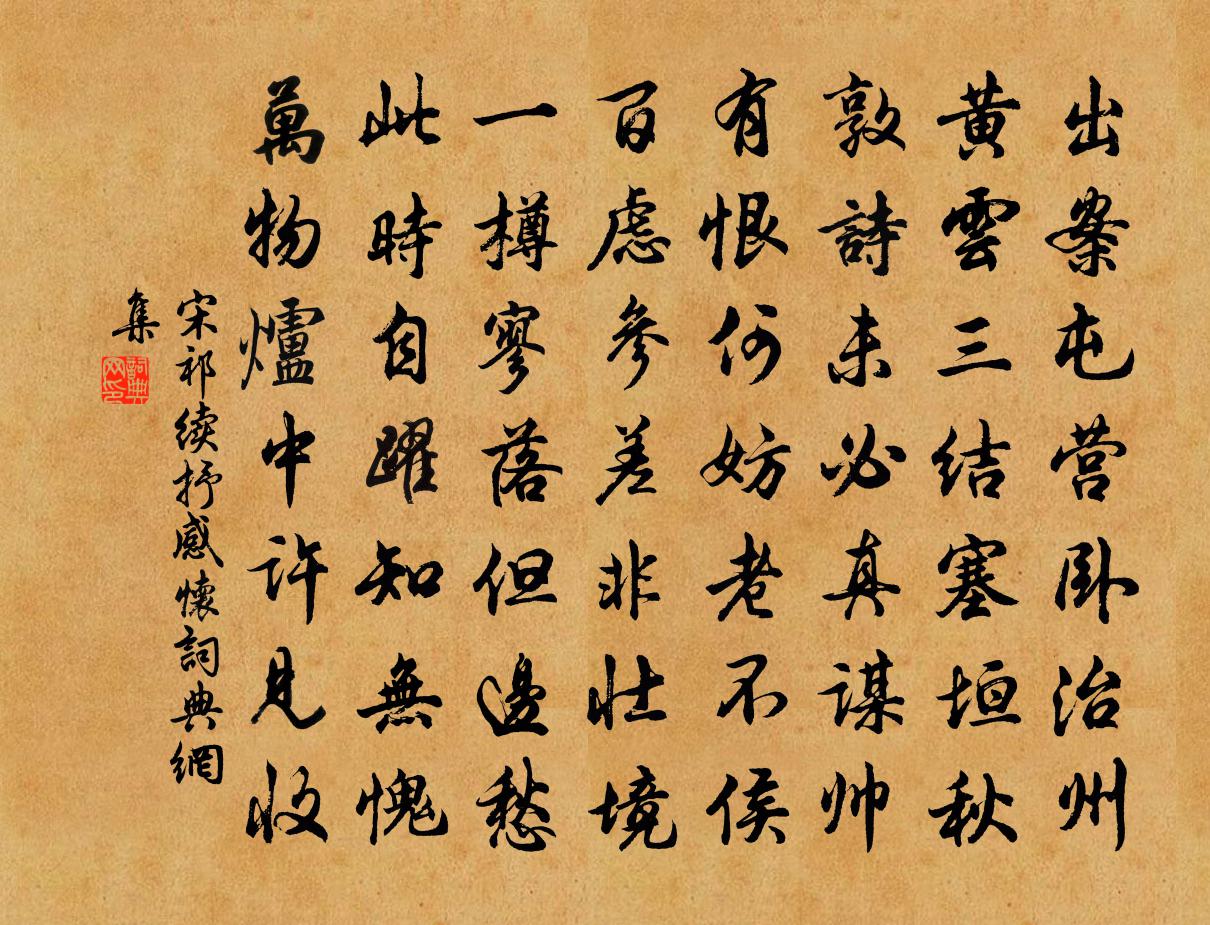 出桊屯营卧治州
黄雲三结塞垣秋
敦詩未必真谋帅
有恨何妨老不侯
百虑參差非壮境
一樽寥落但邊愁
此時自躍知無愧
萬物爐中許見收
宋祁续抒感懷詞典網
集
詞典
网印